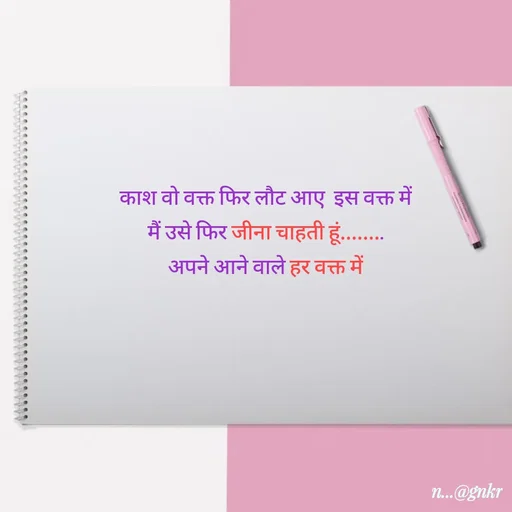 काश वो वक्त फिर लौट आए इस वक्त में
मैं उसे फिर जीना चाहती हूं........
अपने आने वाले हर वक्त में
n...@gnkr